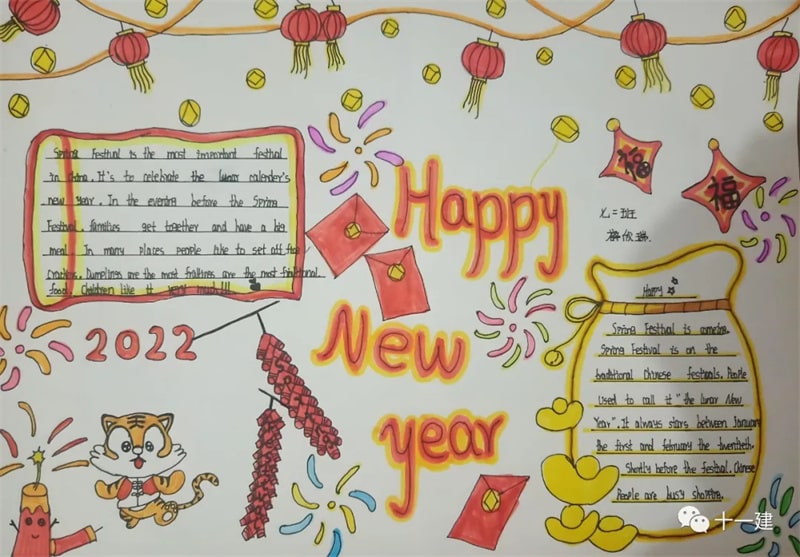 Spring Festival is the most important festival
in China. It's to celebrate the lunar calender's
new year. In the evening before the Spring
Festival, families get together and have a big
meal. In many places people like to set off fire
Crackers. Dumplings are the most fraitings are the most traditional
food. Children like it very much!!!
2022
Happy
New
year
福
福
九二班
Happy
Spring Festival is comeing.
Spring Festival is on the
traditional Chinese festivals. People
used to call it "the lunar New
Year". It always stars between January
the first and february the twentieth.
Shortly before the festival. Chinese
People are busy shopping.
十一建